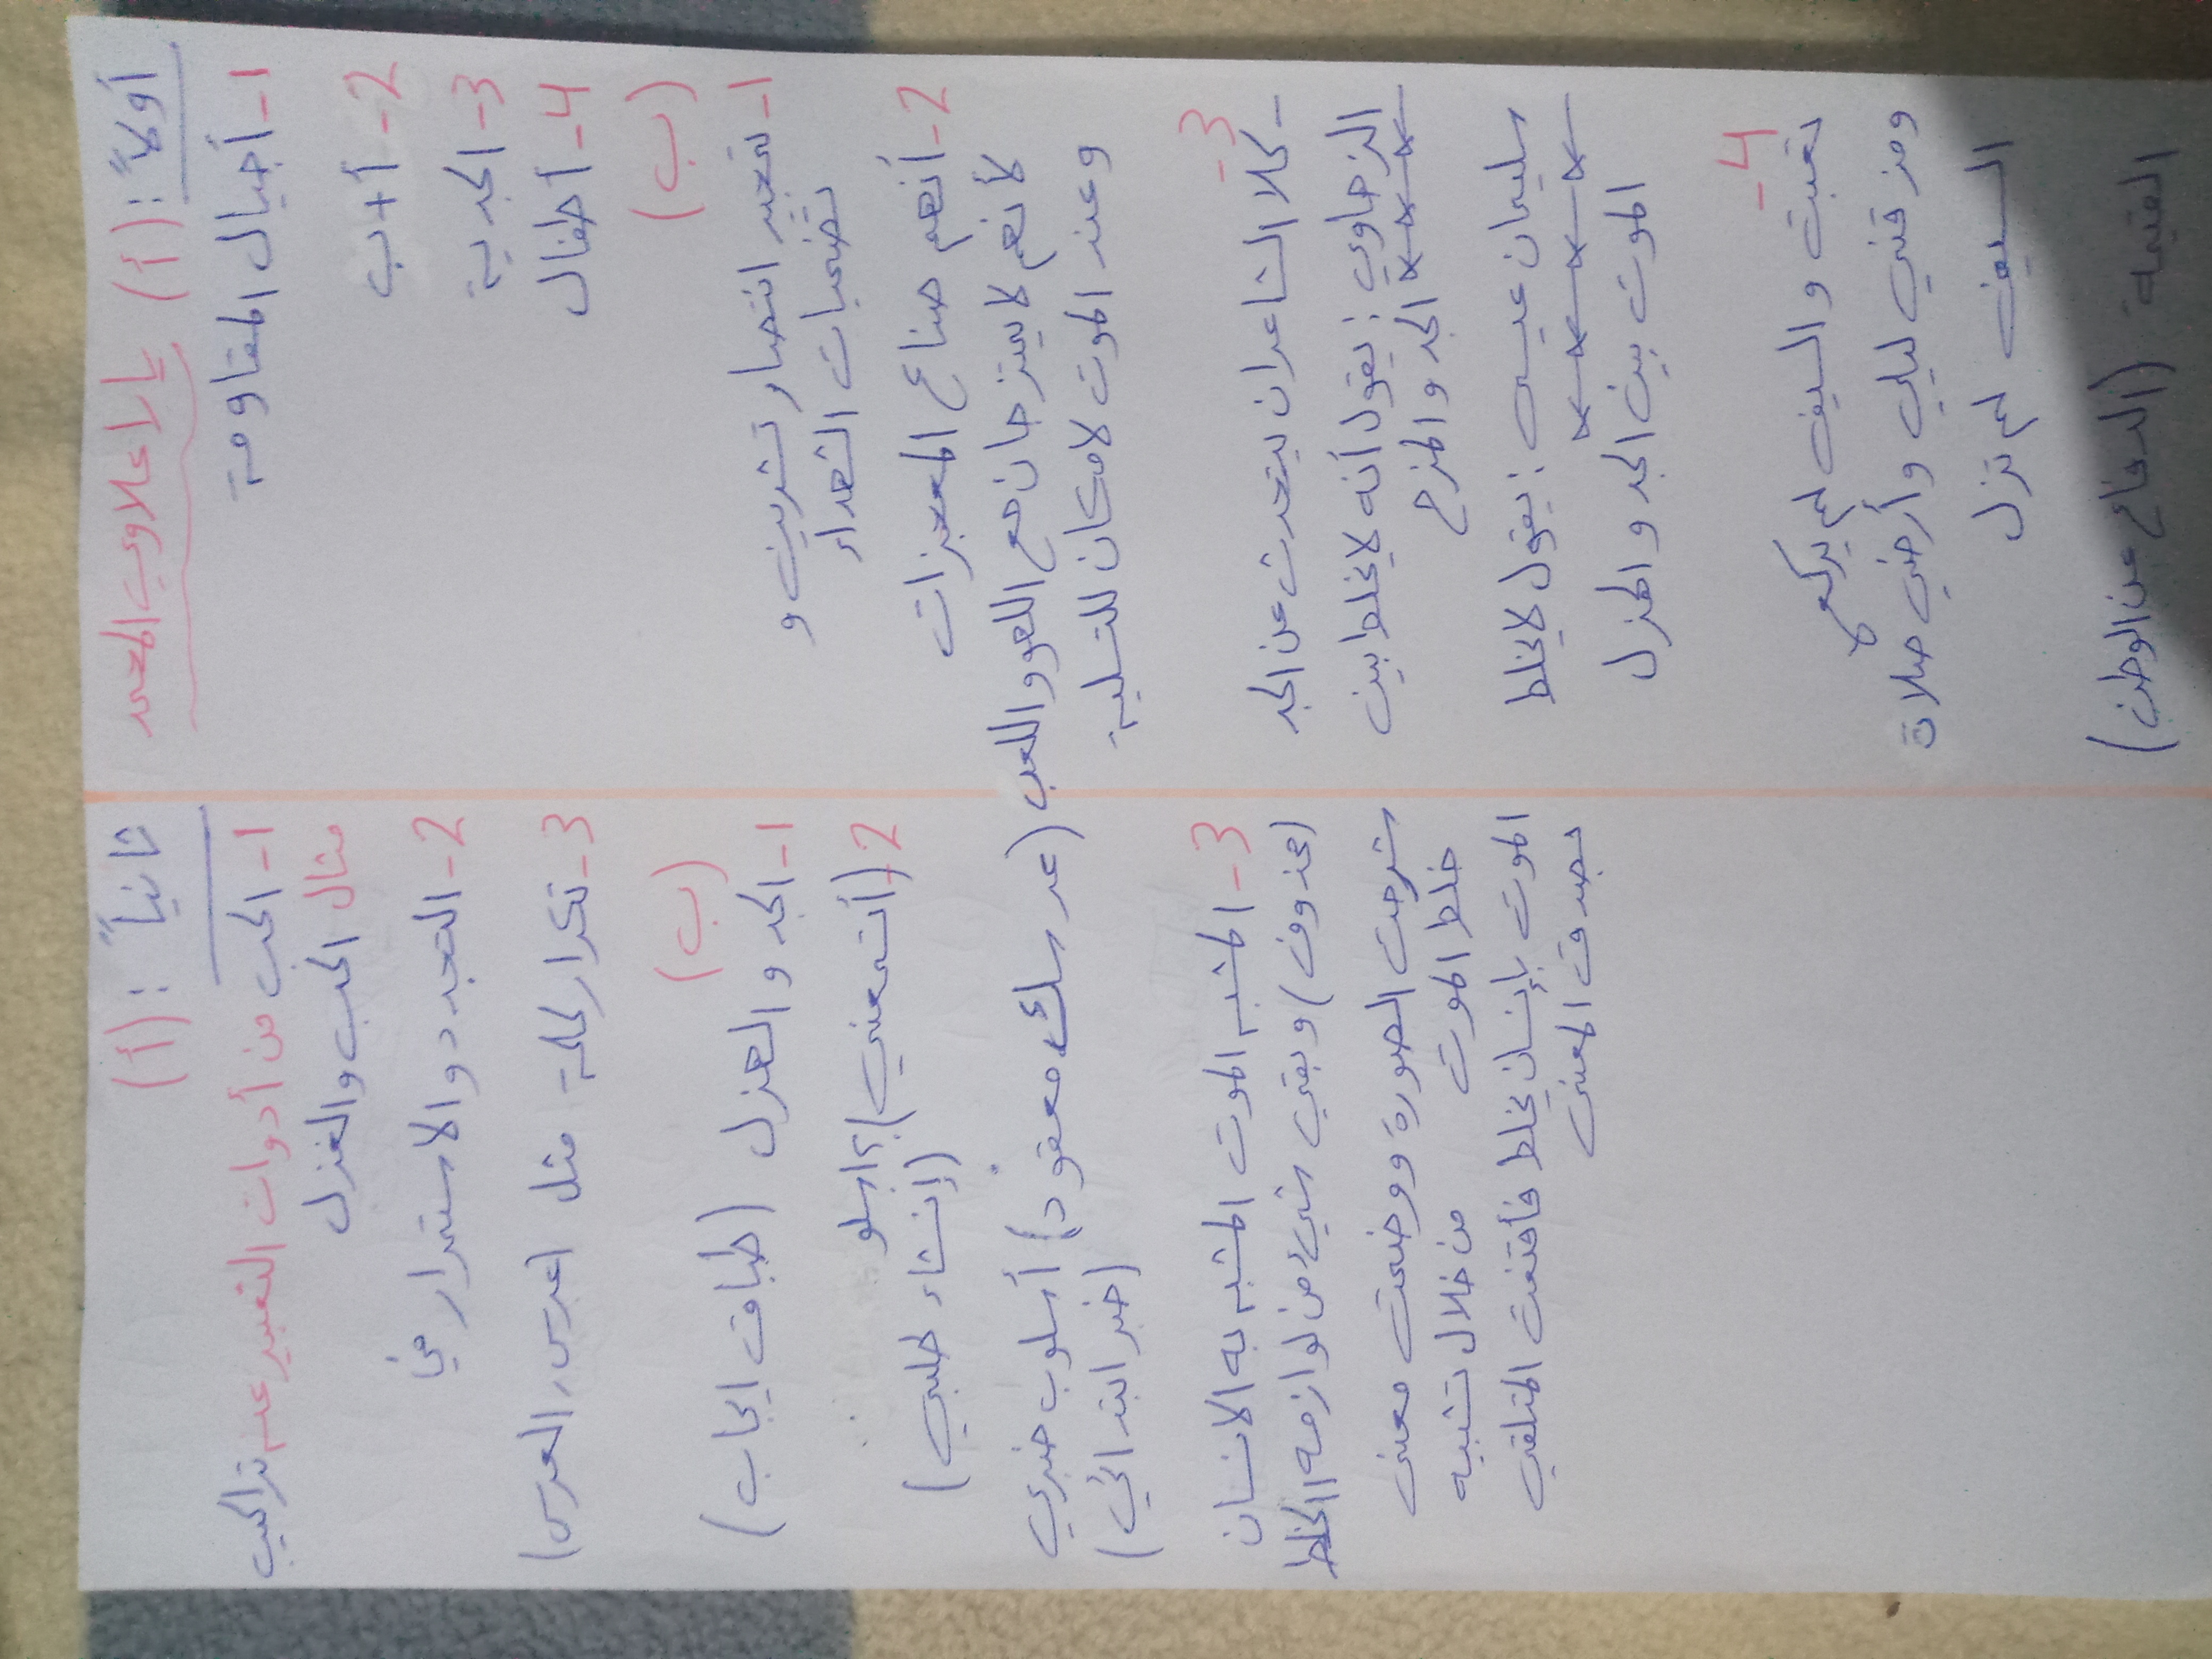 أولاً : (أ) يا لا علاوي المحمد
1- أجيال المقاومة
2- أ + ب
3- الجدية
4- أطفال
(ب)
1- تعبير انتصار تشرين و
تضحيات الشهداء
2- أنهم صناع المعجزات
لأنهم لا يمتزجان مع اللهو واللعب
وعند الموت لا مكان للتسلية
3-
- كلا الشاعران يتحدث عن الجد
الزحاوي : يقول أنه لا يخلط بين
الجد والمزح
سليمان عيسى : يقول لا يخلط
الموت بين الجد و الهزل
4-
تعبت و السيف لم يركع
ومزقني ليلي وأرضي صلاة
السيف لم تزل
القيمة : (الدفاع عن الوطن)
ثانياً : (أ)
1- الحب من أدوات التعبير عنه تراكيب
مثال الحب والغزل
2- التجدد والاستمرار في
3- تكرار كلمة مثل (عرس، العرس)
(ب)
1- الجد و الهزل (طباق ايجاب)
2- (أتسمعني)؟ اسلو
(إنشاء طلبي)
(عرسك معقود) أسلوب خبري
(خبر ابتدائي)
3- المشبه الموت المشبه به الانسان
(محذوف) وبقي شيء من لوازمه الخلط
شرحت الصورة ووضحت معنى
خلط الموت من خلال تشبيه
الموت بإنسان يخلط فأقنعت المتلقي
بصدق المعنى